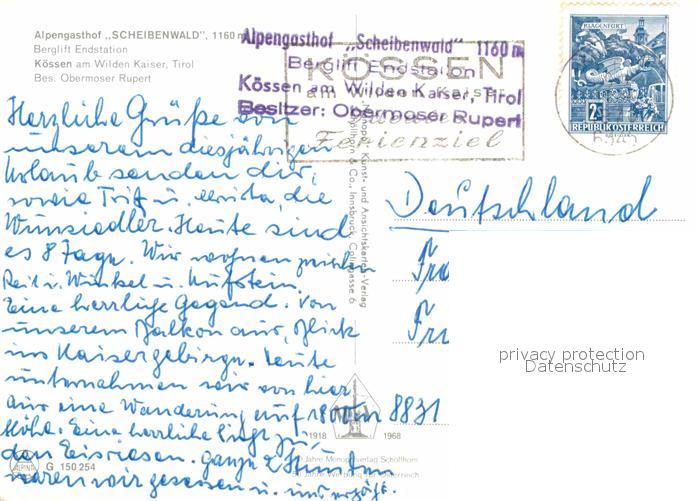 Alpengasthof „SCHEIBENWALD", 1160 m
Berglift Endstation
Kössen am Wilden Kaiser, Tirol
Bes. Obermoser Rupert
Alpengasthof „Scheibenwald" 1160 m
Berglift Endstation
Kössen am Wilden Kaiser, Tirol
Besitzer: Obermoser Rupert
KÖSSEN
Ferienziel
KLAGENFURT
2S
REPUBLIK ÖSTERREICH
Herzliche Grüße von
unserem diesjährigen
Urlaub senden dir,
sowie Trif u. die
Wunsiedler. Heute sind
es 8 Tage. Wir wohnen zwischen
Reit i. Winkel u. Kufstein.
Eine herrliche Gegend. Von
unserem Balkon aus, Blick
ins Kaisergebirge. Heute
unternahmen wir von hier
aus eine Wanderung auf 1800 m
Höhe. Eine herrliche
den Eisriesen. Ganze 2 Stunden
waren wir gesessen u. uns
Deutschland
Fra
Fr
8831
privacy protection
Datenschutz
Kunst- und Ansichtskarten-Verlag
Schöllhorn & Co., Innsbruck, Colingasse 6
1918 1968
50 Jahre Monopolverlag Schöllhorn
50 Jahre Werbung für Österreich
ALPINE
G 150 254